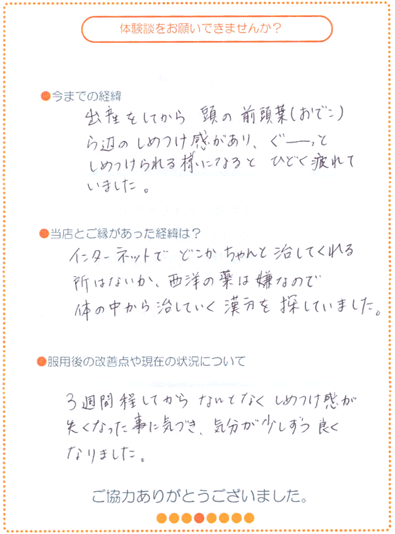 体験談をお願いできませんか？
●今までの経緯
出産をしてから 頭の前頭葉(おでこ)
ら辺のしめつけ感があり、ぐーっと
しめつけられる様になると ひどく疲れて
いました。
●当店とご縁があった経緯は？
インターネットで どこか ちゃんと 治してくれる
所はないか、西洋の薬は嫌なので
体の中から治していく 漢方を 探していました。
●服用後の改善点や現在の状況について
3週間程してから なんとなく しめつけ感が
失くなった事に気づき、気分が少しずつ 良く
なりました。
ご協力ありがとうございました。